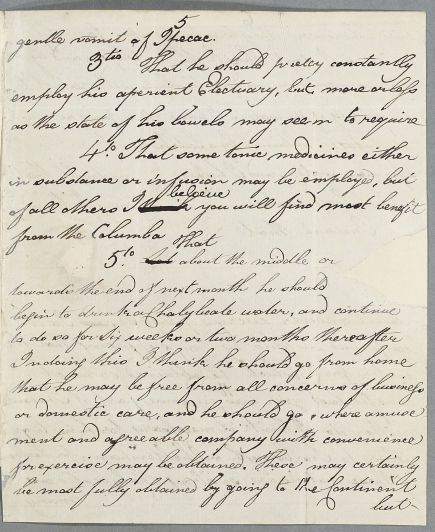 5
gentle vomit of Ipecac.
3tio That he should pretty constantly
employ his aperient Electuary, but more or less
as the state of his bowels may seem to require
4o. That some tonic medicines either
in substance or infusion may be employed, but
believe
of all others I you will find most benefit
from the Columba
That
5to. about the middle or
towards the end of next month he should
begin to drink a Chalybeate water, and continue
to do so for six weeks or two months thereafter
In doing this I think he should go from home
that he may be free from all concerns of business
or domestic care, and he should go, where amuse
ment and agreeable company with convenience
for exercise may be obtained. These may certainly
be most fully obtained by going to the Continent
but